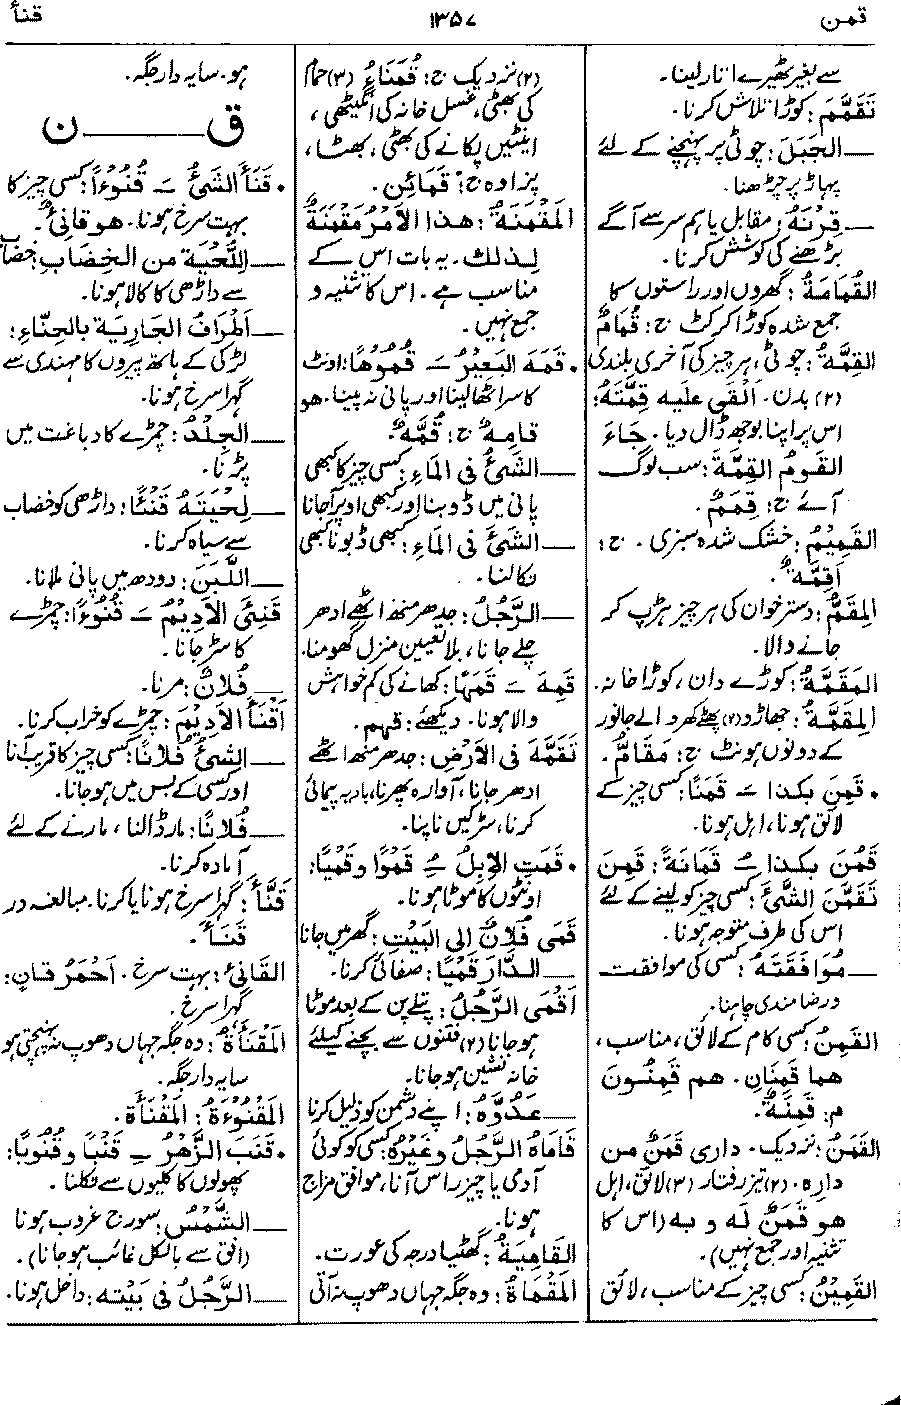 قمن
۱۳۵۷
قنأ
سے بغیر ٹھیرے اتار لینا۔
تَقَمَّمَ: کوڑا تلاش کرنا۔
ــ الجَبَلَ: چوٹی پر پہنچنے کے لئے
پہاڑ پر چڑھنا۔
ــ قِرْنَهُ: مقابل یا ہم سر سے آگے
بڑھنے کی کوشش کرنا۔
القُمَامَةُ: گھروں اور راستوں کا
جمع شدہ کوڑا کرکٹ ج: قُمَامٌ
القِمَّةُ: چوٹی، ہر چیز کی آخری بلندی
(۲) بدن۔ اَلْقَى عليه قِمَّتَهُ:
اس پر اپنا بوجھ ڈال دیا۔ جَاءَ
القَومُ القِمَّةَ: سب لوگ
آئے ج: قِمَمٌ۔
القَمِيْمُ: خشک شدہ سبزی۔ ج:
اَقِمَّةٌ۔
المِقَمُّ: دسترخوان کی ہر چیز ہڑپ کر
جانے والا۔
المَقَمَّةُ: کوڑے دان، کوڑا خانہ۔
المِقَمَّةُ: جھاڑو (۲) پھٹے کھر والے جانور
کے دونوں ہونٹ ج: مَقَامُّ۔
• قَمِنَ بكذا ــَ قَمَنًا: کسی چیز کے
لائق ہونا، اہل ہونا۔
قَمُنَ بكذا ــُ قَمَانَةً: قَمِنَ
تَقَمَّنَ الشَّيْءَ: کسی چیز کو لینے کے لئے
اس کی طرف متوجہ ہونا۔
ــ مُوَافَقَتَهُ: کسی کی موافقت
و رضامندی چاہنا۔
القَمِنُ: کسی کام کے لائق، مناسب،
هما قَمِنَانِ۔ هم قَمِنُونَ
م: قَمِنَةٌ۔
القَمَنُ: نزدیک۔ داری قَمَنٌ من
دارہ۔ (۲) تیز رفتار (۳) لائق، اہل
هو قَمَنٌ لَهُ و به (اس کا
تثنیہ اور جمع نہیں)۔
القَمِيْنُ: کسی چیز کے مناسب، لائق
(۲) نزدیک ج: قُمَنَاءُ (۳) حمام
کی بھٹی، غسل خانہ کی انگیٹھی،
اینٹیں پکانے کی بھٹی، بھٹا،
پزادہ ج: قَمَائِن۔
المَقْمَنَةُ: هذا الاَمْرُ مَقْمَنَةٌ
لِذلك۔ یہ بات اس کے
مناسب ہے۔ اس کا تثنیہ و
جمع نہیں۔
• قَمَهَ البَعِيْرُ ــَ قُمُوهًا: اونٹ
کا سر اٹھا لینا اور پانی نہ پینا۔ هو
قامِهٌ ج: قُمَّهٌ۔
ــ الشَّيْءُ فی المَاءِ: کسی چیز کا کبھی
پانی میں ڈوبنا اور کبھی اوپر آجانا
ــ الشَّيْءَ فی المَاءِ: کبھی ڈبونا کبھی
نکالنا۔
ــ الرَّجُلُ: جدھر منھ اٹھے ادھر
چلے جانا، بلا تعیین منزل گھومنا۔
قَمِهَ ــَ قَمَهًا: کھانے کی کم خواہش
والا ہونا۔ دیکھئے: قهم۔
تَقَمَّهَ فی الاَرْضِ: جدھر منھ اٹھے
ادھر جانا، آوارہ پھرنا، بادیہ پیمائی
کرنا، سڑکیں ناپنا۔
• قَمَتِ الاِبِلُ ــُ قَمْوًا وقَمْيًا:
اونٹوں کا موٹا ہونا۔
قَمَى فُلَانٌ الى البَيْتِ: گھر میں جانا
ــ الدَّارَ قَمْيًا: صفائی کرنا۔
اَقْمَى الرَّجُلُ: پتلے پن کے بعد موٹا
ہوجانا (۲) فتنوں سے بچنے کیلئے
خانہ نشین ہوجانا۔
ــ عَدُوَّهُ: اپنے دشمن کو ذلیل کرنا
قَامَاهُ الرَّجُلُ وغَيْرُهُ: کسی کو کوئی
آدمی یا چیز راس آنا، موافق مزاج
ہونا۔
القَامِيَةُ: گھٹیا درجہ کی عورت۔
المَقْمَاةُ: وہ جگہ جہاں دھوپ نہ آتی
ہو۔ سایہ دار جگہ۔
ق ــــ ن
• قَنَأَ الشَّيْءُ ــَ قُنُوءًا: کسی چیز کا
بہت سرخ ہونا۔ هو قانِئٌ۔
ــ اللِّحْيَةُ من الخِضَابِ: خضاب
سے داڑھی کا کالا ہونا۔
ــ اَطْرَافُ الجَارِيَةِ بالحِنَّاءِ:
لڑکی کے ہاتھ پیروں کا مہندی سے
گہرا سرخ ہونا۔
ــ الجِلْدُ: چمڑے کا دباغت میں
پڑنا۔
ــ لِحْيَتَهُ قَنْئًا: داڑھی کو خضاب
سے سیاہ کرنا۔
ــ اللَّبَنَ: دودھ میں پانی ملانا۔
قَنِئَ الاَدِيْمُ ــَ قُنُوءًا: چمڑے
کا سڑ جانا۔
ــ فُلَانٌ: مرنا۔
اَقْنَأَ الاَدِيْمَ: چمڑے کو خراب کرنا۔
ــ الشَّيْءُ فُلَانًا: کسی چیز کا قریب آنا
اور کسی کے بس میں ہوجانا۔
ــ فُلَانًا: مار ڈالنا، مارنے کے لئے
آمادہ کرنا۔
قَنَّأَ: گہرا سرخ ہونا یا کرنا۔ مبالغہ در
قَنَأَ۔
القَانِئُ: بہت سرخ۔ اَحْمَرُ قَانٍ:
گہرا سرخ۔
المَقْنَأَةُ: وہ جگہ جہاں دھوپ نہ پہنچتی ہو
سایہ دار جگہ۔
المَقْنُوءَةُ: المَقْنَأَة۔
• قَنَبَ الزَّهْرُ ــِ قَنْبًا وقُنُوبًا:
پھولوں کا کلیوں سے نکلنا۔
ــ الشَّمْسُ: سورج غروب ہونا
(افق سے بالکل غائب ہوجانا)۔
ــ الرَّجُلُ فی بَيْتِه: داخل ہونا۔